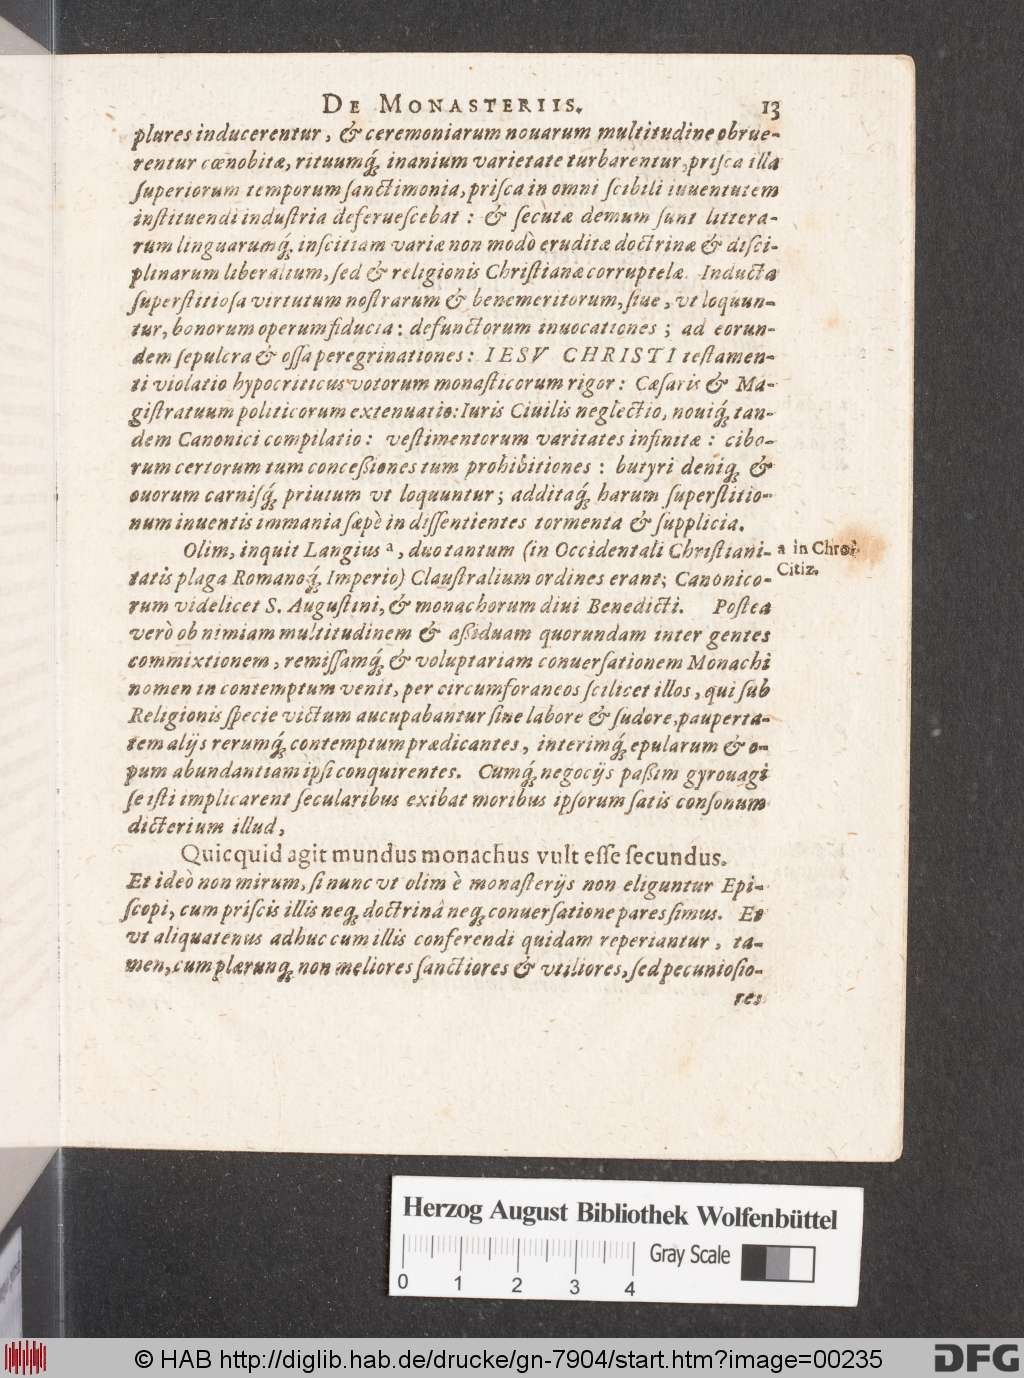 DE MONASTERIIS. 13
plures inducerentur, & ceremoniarum nouarum multitudine obrue-
rentur cœnobitæ, rituumq́; inanium varietate turbarentur, priſca illa
ſuperiorum temporum ſanctimonia, priſca in omni ſcibili iuuentutem
inſtituendi induſtria deferueſcebat : & ſecutæ demum ſunt littera-
rum linguarumq́; inſcitiam variæ non modò eruditæ doctrinæ & diſci-
plinarum liberalium, ſed & religionis Chriſtianæ corruptelæ. Inducta
ſuperſtitioſa virtutum noſtrarum & benemeritorum, ſiue, vt loquun-
tur, bonorum operum fiducia : defunctorum inuocationes ; ad eorun-
dem ſepulcra & oſſa peregrinationes : IESV CHRISTI teſtamen-
ti violatio hypocriticus votorum monaſticorum rigor : Cæſaris & Ma-
giſtratuum politicorum extenuatio : Iuris Ciuilis neglectio, nouiq́; tan-
dem Canonici compilatio : veſtimentorum varitates infinitæ : cibo-
rum certorum tum conceßiones tum prohibitiones : butyri deniq; &
ouorum carniſq́; priuium vt loquuntur ; additaq́; harum ſuperſtitio-
num inuentis immania ſæpè in diſſentientes tormenta & ſupplicia.
Olim, inquit Langius ª, duo tantum (in Occidentali Chriſtiani-
a in Chro.
Citiz.
tatis plaga Romanoq́; Imperio) Clauſtralium ordines erant; Canonico-
rum videlicet S. Auguſtini, & monachorum diui Benedicti. Poſtea
verò ob nimiam multitudinem & aßiduam quorundam inter gentes
commixtionem, remiſſamq́; & voluptariam conuerſationem Monachi
nomen in contemptum venit, per circumforaneos ſcilicet illos, qui ſub
Religionis ſpecie victum aucupabantur ſine labore & ſudore, pauperta-
tem alijs rerumq́; contemptum prædicantes, interimq́; epularum & o-
pum abundantiam ipſi conquirentes. Cumq́; negocijs paßim gyrouagi
ſe iſti implicarent ſecularibus exibat moribus ipſorum ſatis conſonum
dicterium illud,
Quicquid agit mundus monachus vult eſſe ſecundus.
Et ideò non mirum, ſi nunc vt olim è monaſterijs non eliguntur Epi-
ſcopi, cum priſcis illis neq; doctrinâ neq; conuerſatione pares ſimus. Et
vt aliquatenus adhuc cum illis conferendi quidam reperiantur, ta-
men, cum plærunq; non meliores ſanctiores & vtiliores, ſed pecunioſio-
res
Herzog August Bibliothek Wolfenbüttel
Gray Scale
0 1 2 3 4
© HAB http://diglib.hab.de/drucke/gn-7904/start.htm?image=00235
DFG